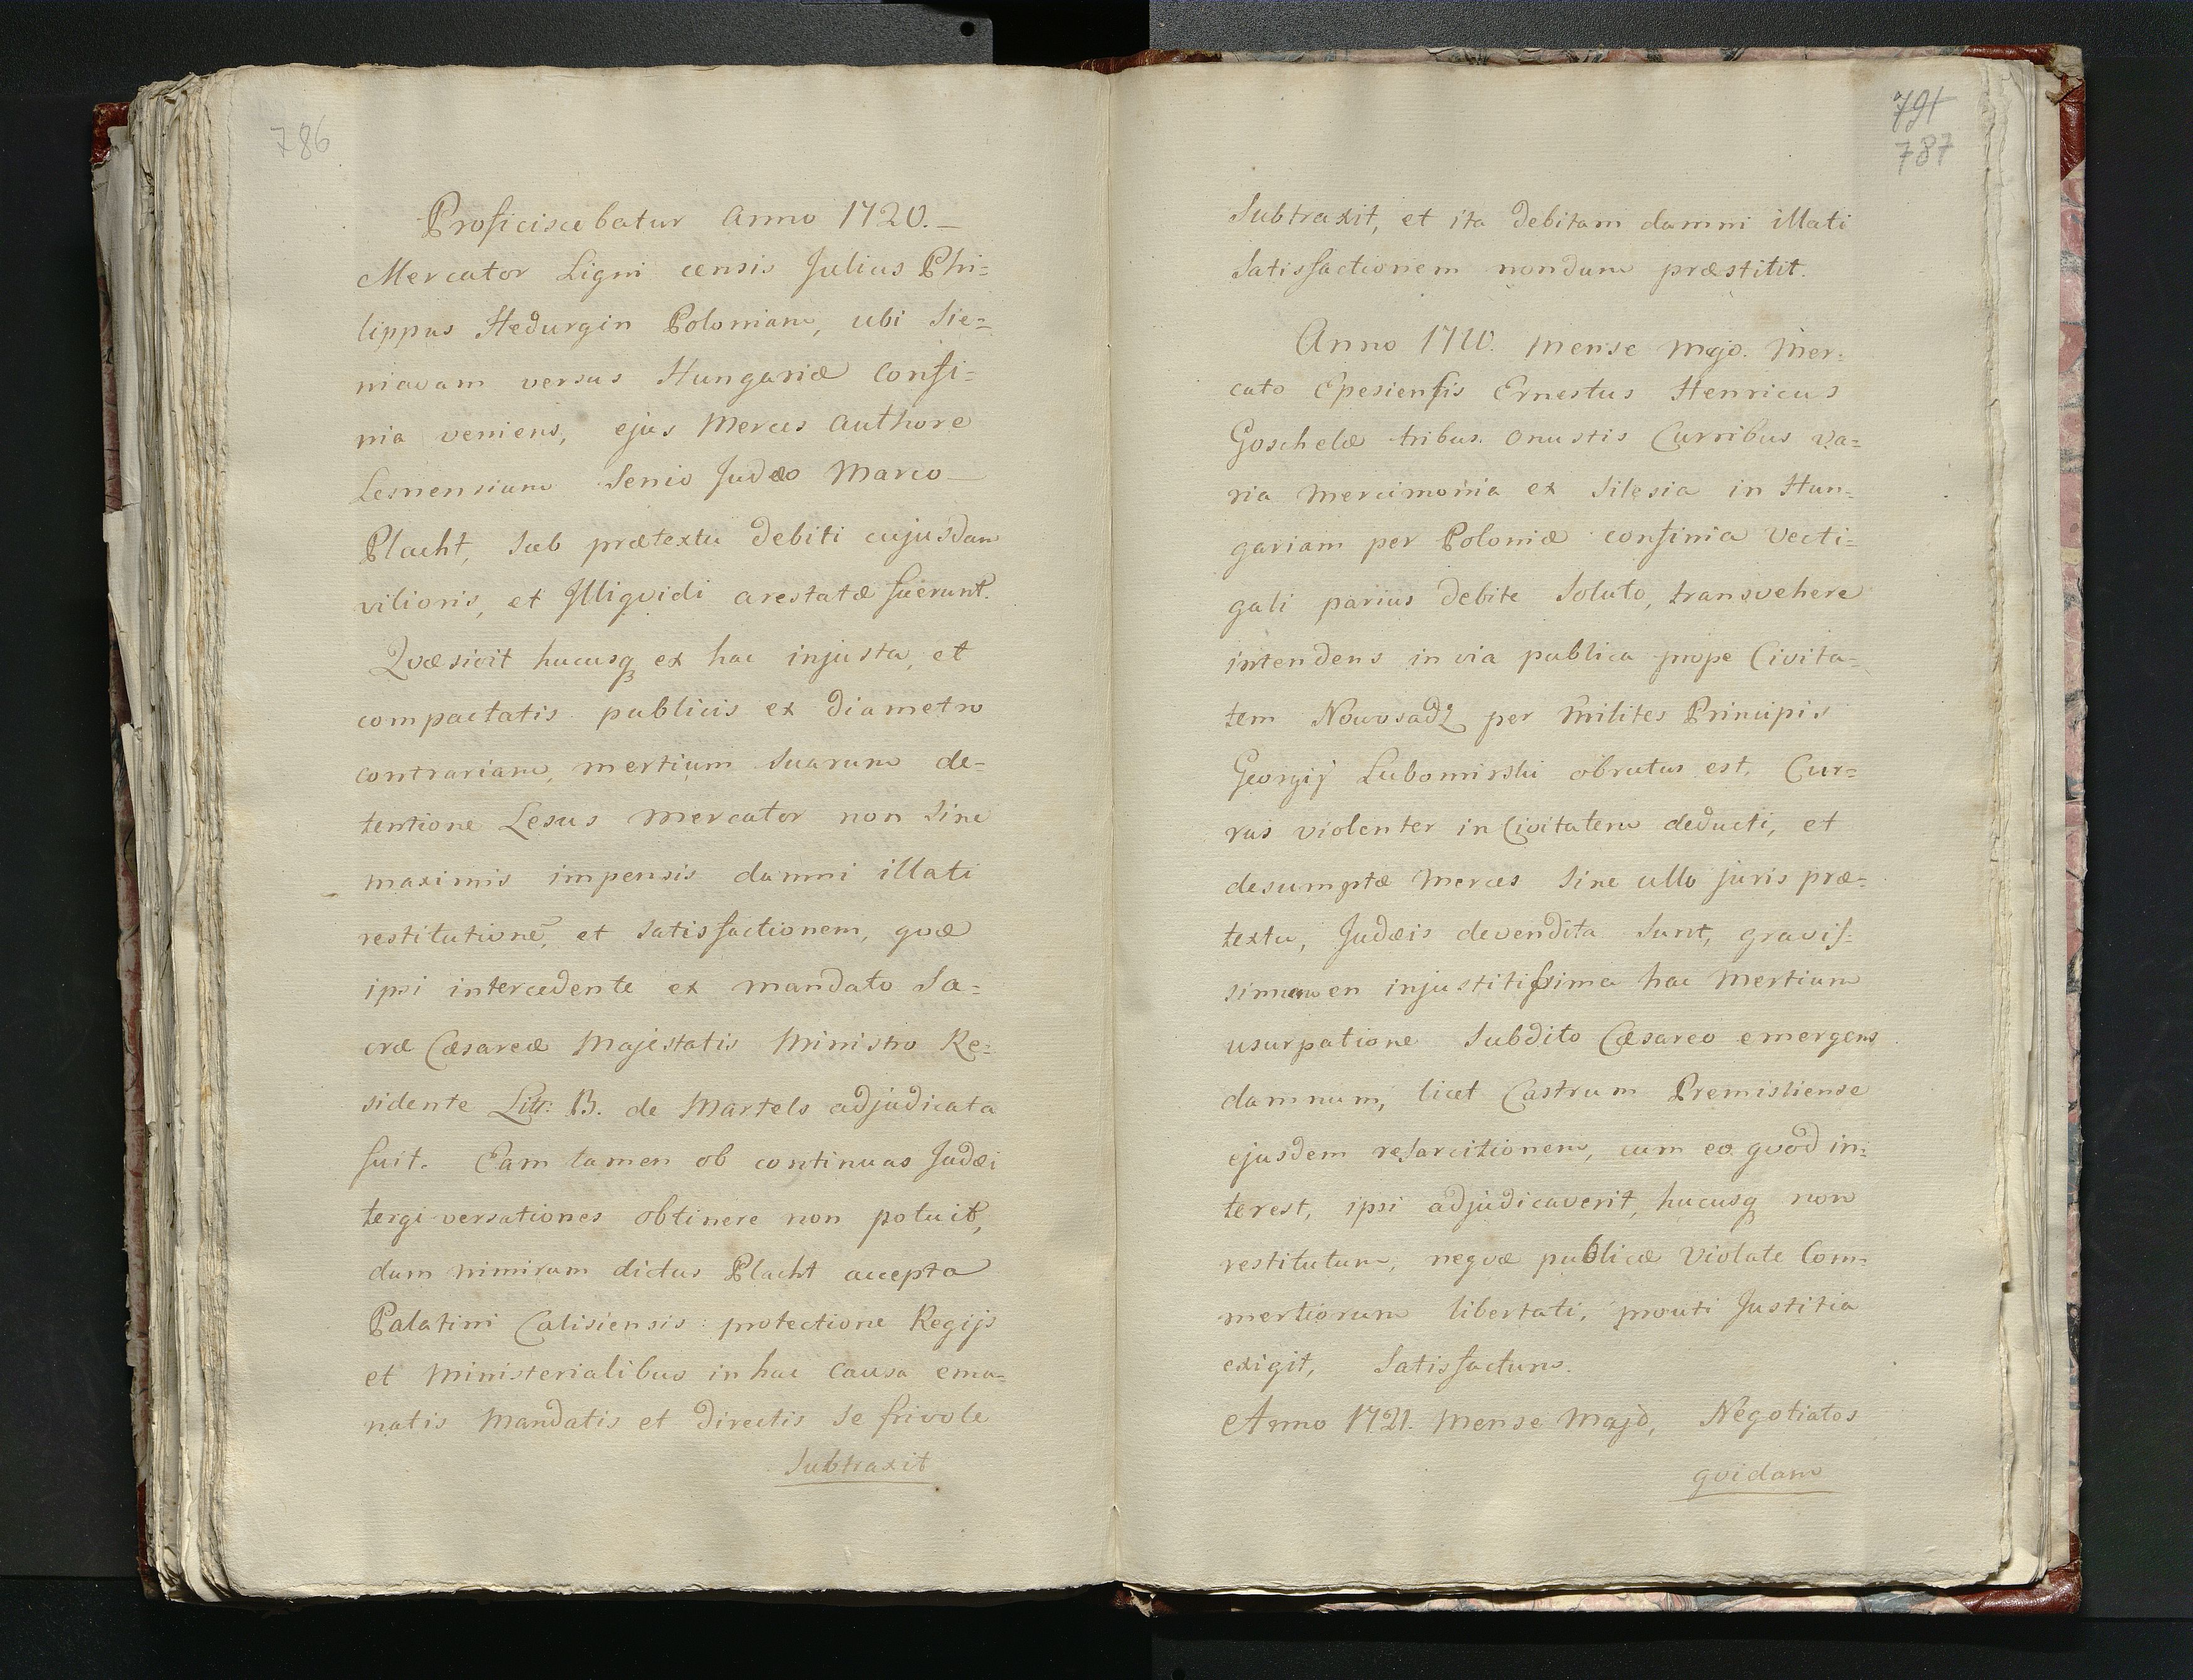 786
Proficiscebatur Anno 1720.
Mercator Ligni censis Julius Phi=
lippus Hedurgin Poloniam, ubi Sie=
niavam versus Hungariæ Confi=
nia veniens, ejus Merces Authore
Lesnensium Senio Judæo Marco
Placht, sub prætextu debiti cujusdam
vilioris, et Illiqvidi arestatæ fuerunt.
Qvæsivit hucusq ex hac injusta, et
compactatis publicis ex diametro
contrariam, mertium suarum de=
tentione Lesus Mercator non sine
maximis impensis damni illati
restitutionē, et satisfactionem, qvæ
ipsi intercedente ex mandato Sa=
cræ Cæsareæ Majestatis Ministro Re=
sidente Litt: B. de Martels adjudicata
fuit. Eam tamen ob continuas Judæi
tergi versationes obtinere non potuit,
dum nimirum dictus Placht accepta
Palatini Calisiensis protectione Regijs
et Ministerialibus in hac Causa ema=
natis Mandatis et directis se frivole
Subtraxit
791
787
Subtraxit, et ita debitam damni illati
Satisfactionem nondum præstitit.
Anno 1710. Mense Majo. Mer=
cato Epesiensis Ernestus Henricus
Goschelæ tribus onustis Curribus va=
ria Mercimonia ex Silesia in Hun=
gariam per Poloniæ confinia Vecti=
gali parius debite Soluto, transvehere
intendens in via publica prope Civita=
tem Nowosadz per Milites Principis
Georgij Lubomirski obrutus est, Cur=
rus violenter in Civitatem deducti, et
desumptæ Merces sine ullo juris præ=
textu, Judæis devendita sunt, gravis=
simum en injustitissima hac Mertium
usurpatione Subdito Cæsareo emergens
damnum, licet Castrum Premisliense
ejusdem resarcitionem, cum eo qvod in=
terest, ipsi adjudicaverit, hucusq non
restitutum, neqvæ publicæ Violate Com=
mertiorum libertati, prouti Justitia
exigit, Satisfactum.
Anno 1721. Mense Majo, Negotiatos
qvidam